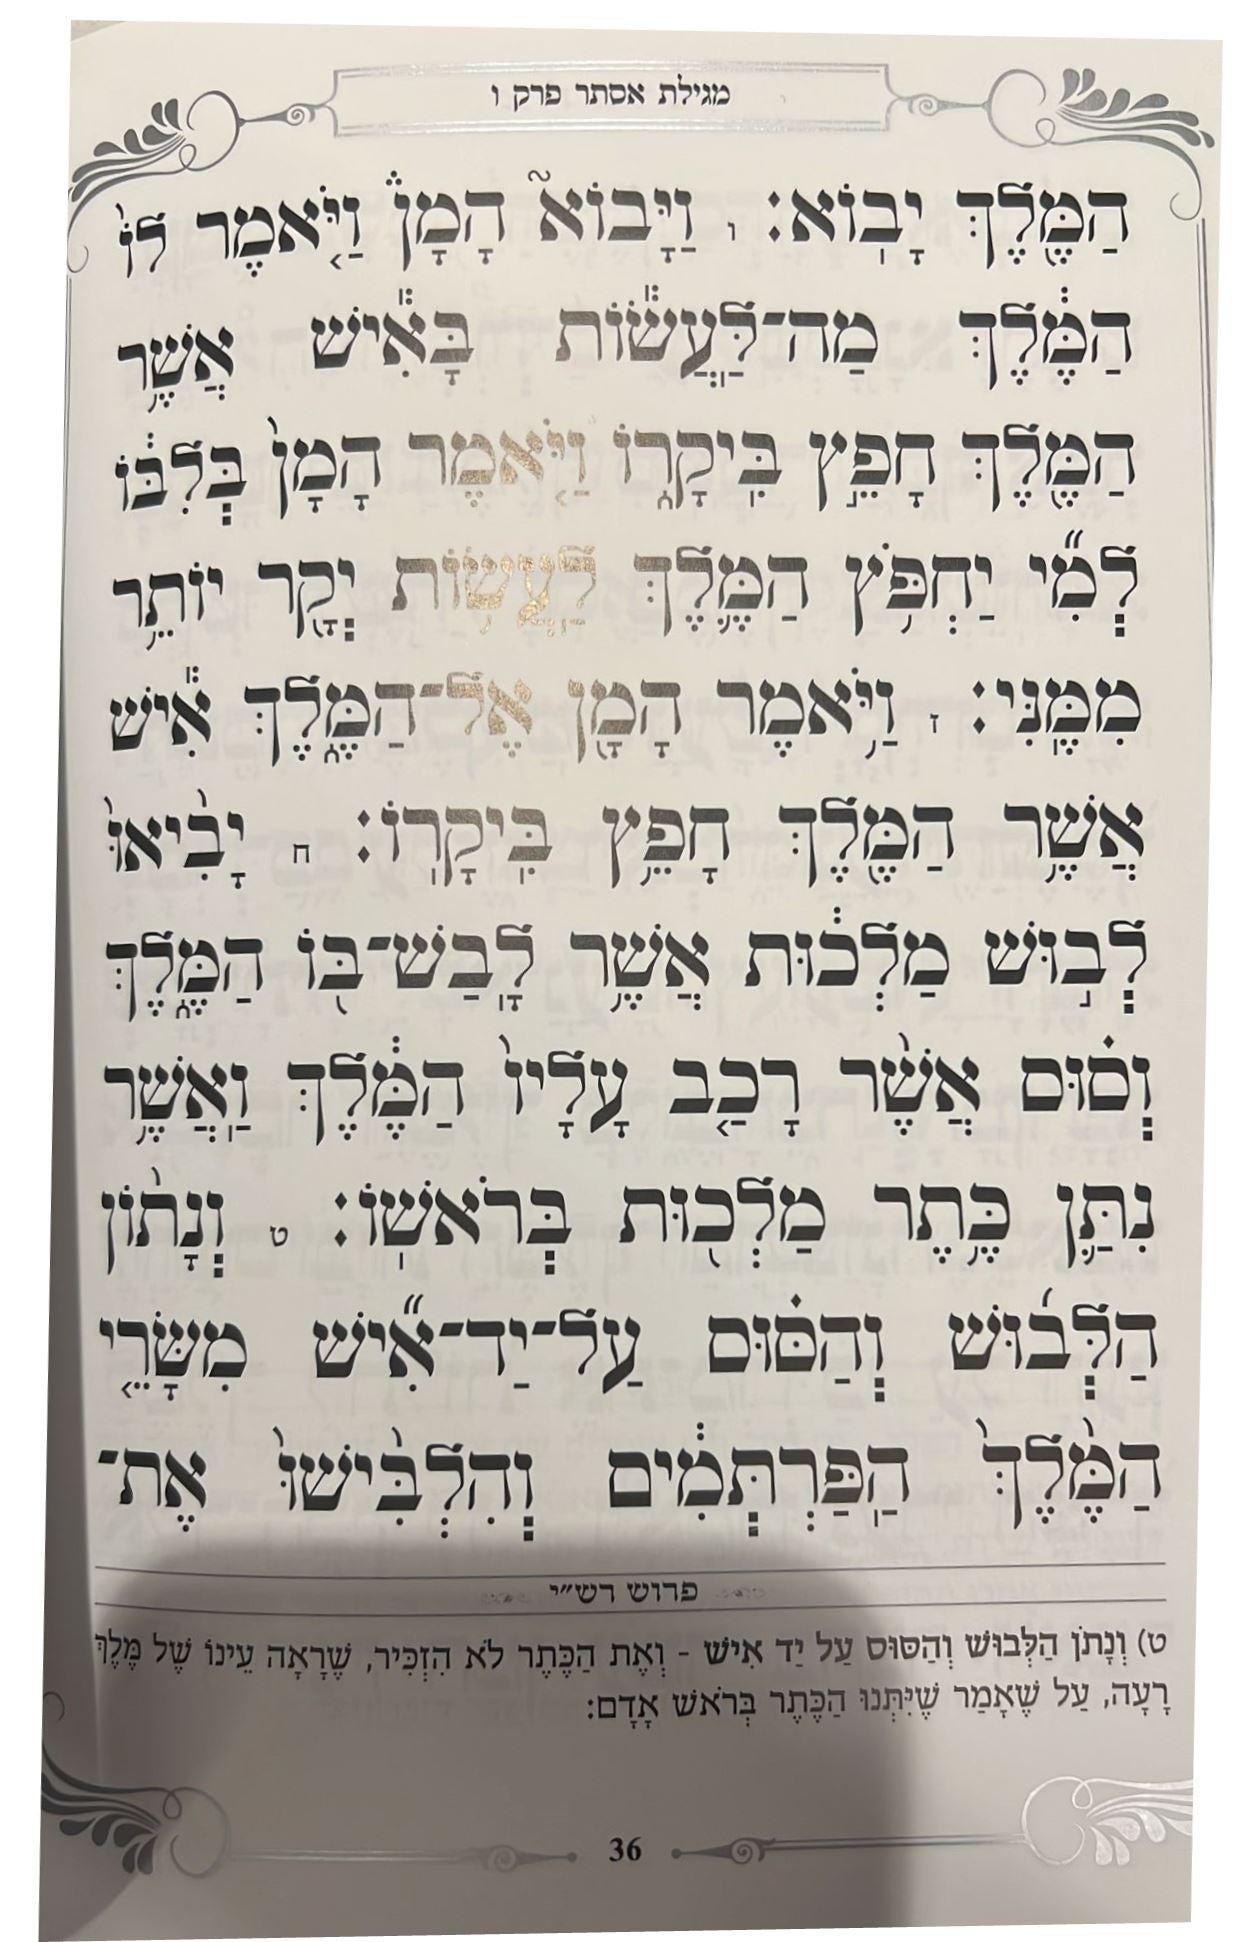 מגילת אסתר פרק ו
הַמֶּ֖לֶךְ יָבֽוֹא׃ ו וַיָּבוֹא֮ הָמָן֒ וַיֹּ֤אמֶר לוֹ֙
הַמֶּ֔לֶךְ מַה־לַּעֲשׂ֕וֹת בָּאִ֕ישׁ אֲשֶׁ֥ר
הַמֶּ֖לֶךְ חָפֵ֣ץ בִּֽיקָר֑וֹ וַיֹּ֤אמֶר הָמָן֙ בְּלִבּ֔וֹ
לְמִ֞י יַחְפֹּ֥ץ הַמֶּ֛לֶךְ לַעֲשׂ֥וֹת יְקָ֖ר יוֹתֵ֥ר
מִמֶּֽנִּי׃ ז וַיֹּ֥אמֶר הָמָ֖ן אֶל־הַמֶּ֑לֶךְ אִ֕ישׁ
אֲשֶׁ֥ר הַמֶּ֖לֶךְ חָפֵ֥ץ בִּֽיקָרֽוֹ׃ ח יָבִ֙יאוּ֙
לְב֣וּשׁ מַלְכ֔וּת אֲשֶׁ֥ר לָֽבַשׁ־בּ֖וֹ הַמֶּ֑לֶךְ
וְס֗וּס אֲשֶׁ֨ר רָכַ֤ב עָלָיו֙ הַמֶּ֔לֶךְ וַֽאֲשֶׁ֥ר
נִתַּ֛ן כֶּ֥תֶר מַלְכ֖וּת בְּרֹאשֽׁוֹ׃ ט וְנָת֨וֹן
הַלְּב֜וּשׁ וְהַסּ֗וּס עַל־יַד־אִ֞ישׁ מִשָּׂרֵ֤י
הַמֶּ֙לֶךְ֙ הַֽפַּרְתְּמִ֔ים וְהִלְבִּ֙ישׁוּ֙ אֶת־
פרוש רש״י
ט) וְנָתֹן הַלְּבוּשׁ וְהַסּוּס עַל יַד אִישׁ - וְאֶת הַכֶּתֶר לֹא הִזְכִּיר, שֶׁרָאָה עֵינוֹ שֶׁל מֶלֶךְ
רָעָה, עַל שֶׁאָמַר שֶׁיִּתְּנוּ הַכֶּתֶר בְּרֹאשׁ אָדָם:
36